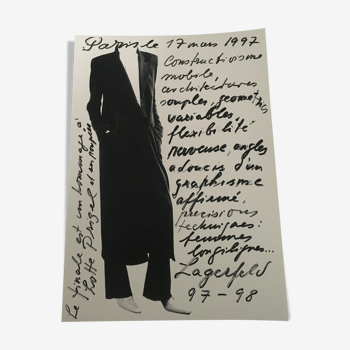 Paris le 17 mars 1997
Constructivisme
mobile,
architectures
souples, géométries
variables,
flexibilité
nerveuse, angles
adoucis d'un
graphisme
affirmé,
précisions
techniques:
femmes
longilignes...
Lagerfeld
97-98
Le finale est un hommage à
Lotte Pritzel et ses poupées